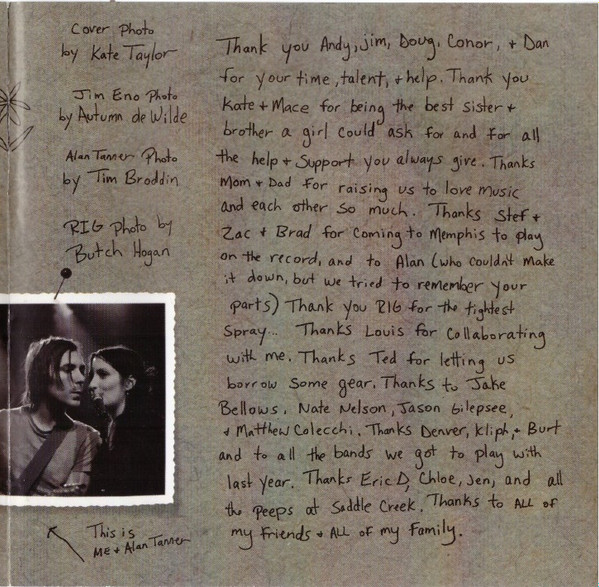 Cover Photo
by Kate Taylor
Jim Eno Photo
by Autumn de Wilde
Alan Tanner Photo
by Tim Broddin
RIG photo by
Butch Hogan
Thank you Andy, Jim, Doug, Conor, + Dan
for your time, talent, + help. Thank you
Kate + Mace for being the best sister +
brother a girl could ask for and for all
the help + support you always give. Thanks
Mom + Dad for raising us to love music
and each other so much. Thanks Stef +
Zac + Brad for coming to Memphis to play
on the record, and to Alan (who couldn't make
it down, but we tried to remember your
parts) Thank you RIG for the tightest
spray... Thanks Louis for collaborating
with me. Thanks Ted for letting us
borrow some gear. Thanks to Jake
Bellows, Nate Nelson, Jason Gilepsee,
+ Matthew Colecchi. Thanks Denver, Kliph, + Burt
and to all the bands we got to play with
last year. Thanks Eric D, Chloe, Jen, and all
the peeps at Saddle Creek. Thanks to ALL of
my friends + ALL of my family.
This is
ME + Alan Tanner